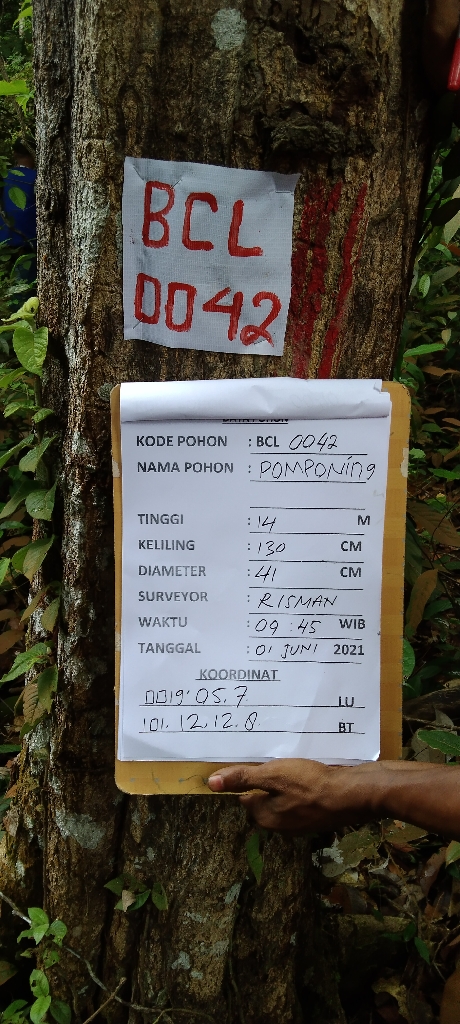 BCL
0042
DATA POHON
KODE POHON : BCL 0042
NAMA POHON : POMPONing
TINGGI : 14 M
KELILING : 130 CM
DIAMETER : 41 CM
SURVEYOR : RISMAN
WAKTU : 09 : 45 WIB
TANGGAL : 01 JUNI 2021
KOORDINAT
0019'05.7 LU
101.12.12.8 BT